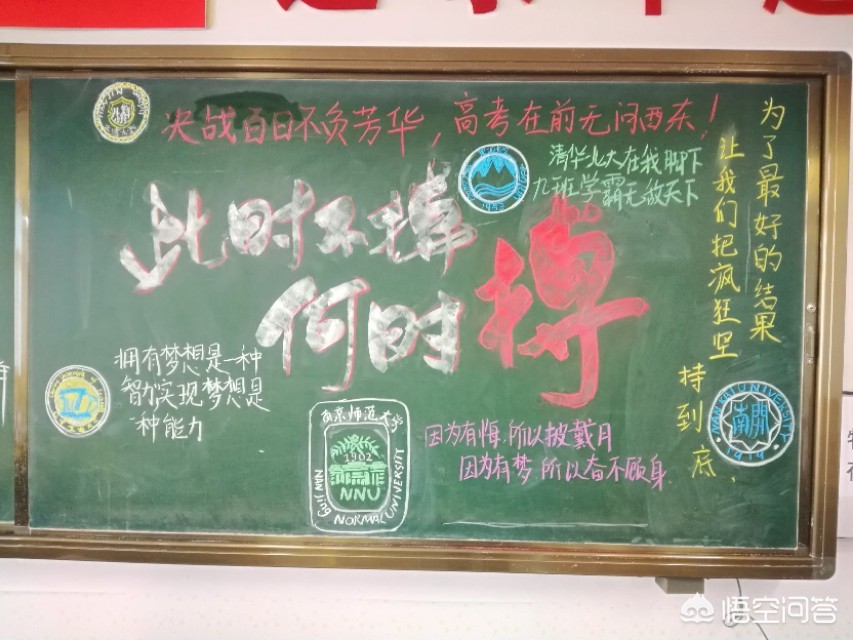 决战百日不负芳华，高考在前无问西东！
清华北大在我脚下
九班学霸无敌天下
为了最好的结果
让我们把疯狂坚
持到底，
此时不搏
何时搏
拥有梦想是一种
智力实现梦想是
一种能力
南京师范大学
1902
NNU
NANJing NORMAL UNIVERSITY
因为有悔，所以披戴月
因为有梦，所以奋不顾身
NANKAI UNIVERSITY
南開
1919
悟空问答